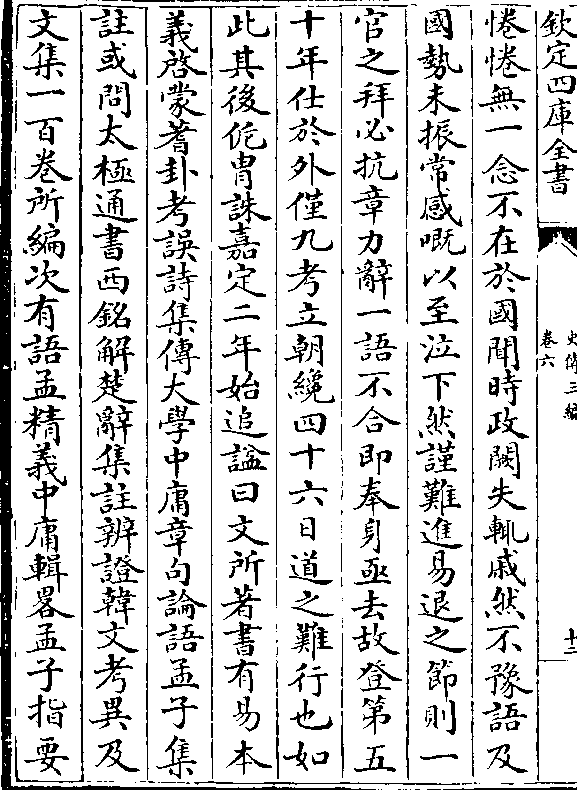 欽定四庫全書
史傳三編
卷六
十二
惓惓無一念不在於國聞時政闕失輒戚然不豫語及
國勢未振常感嘅以至泣下然謹難進易退之節則一
官之拜必抗章力辭一語不合即奉身亟去故登第五
十年仕於外僅九考立朝纔四十六日道之難行也如
此其後侂胄誅嘉定二年始追諡曰文所著書有易本
義啓蒙蓍卦考誤詩集傳大學中庸章句論語孟子集
註或問太極通書西銘解楚辭集註辨證韓文考異及
文集一百卷所編次有語孟精義中庸輯畧孟子指要